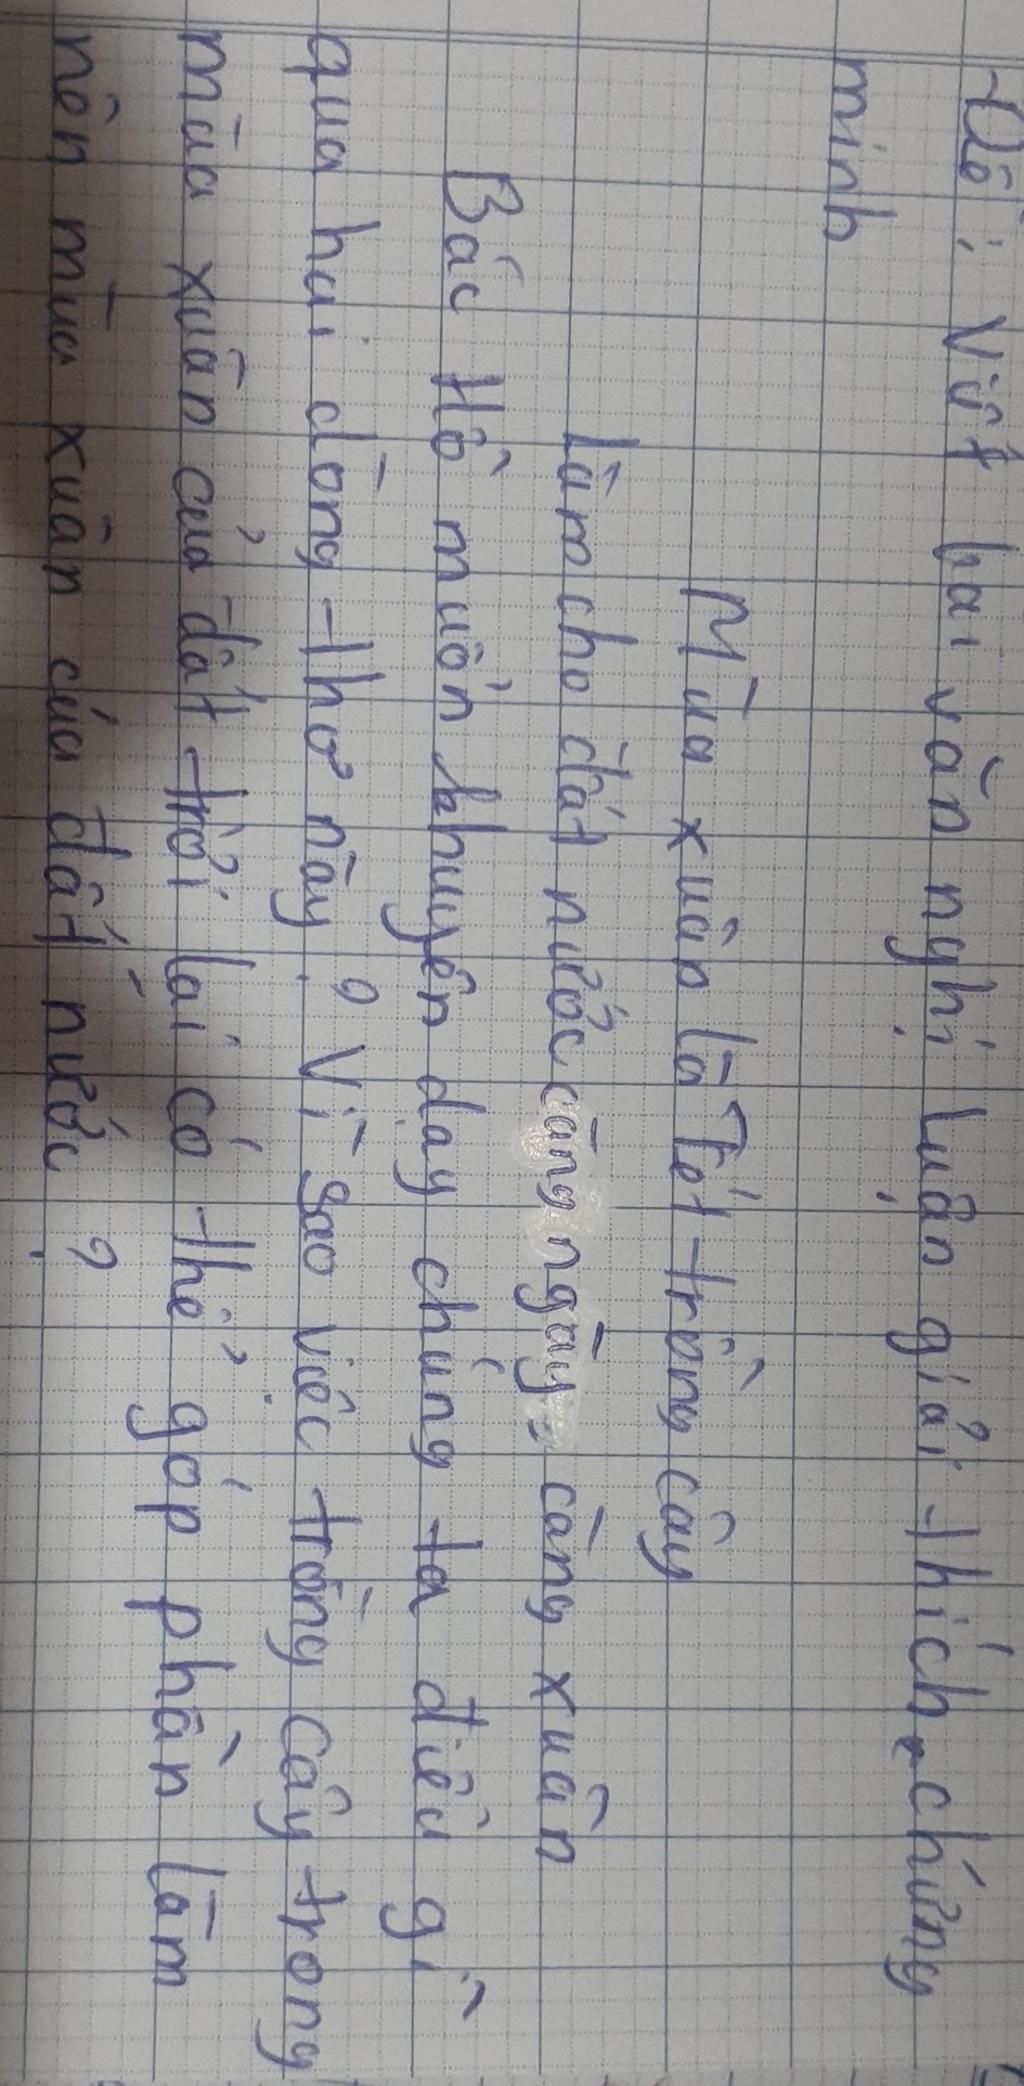 Đề: Viết bài văn nghị luận giải thích - chứng
minh
Mùa xuân là Tết trồng cây
Làm cho đất nước càng ngày càng xuân
Bác Hồ muốn khuyên dạy chúng ta điều gì
qua hai dòng thơ này? Vì sao việc trồng cây trong
mùa xuân của đất trời lại có thể góp phần làm
nên mùa xuân của đất nước?